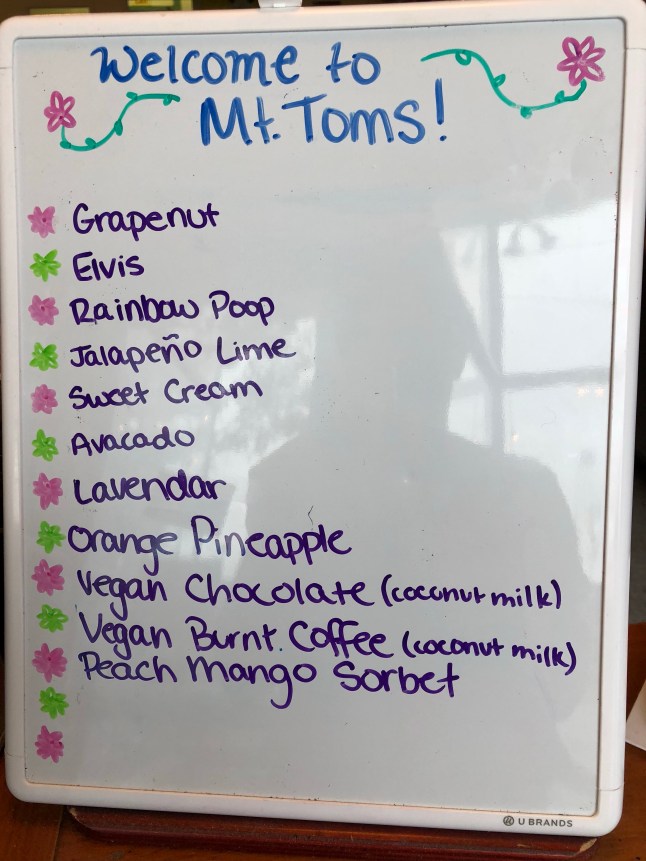 Welcome to
Mt. Toms!
Grapenut
Elvis
Rainbow Poop
Jalapeño Lime
Sweet Cream
Avacado
Lavendar
Orange Pineapple
Vegan Chocolate (coconut milk)
Vegan Burnt. Coffee (coconut milk)
Peach Mango Sorbet
U BRANDS